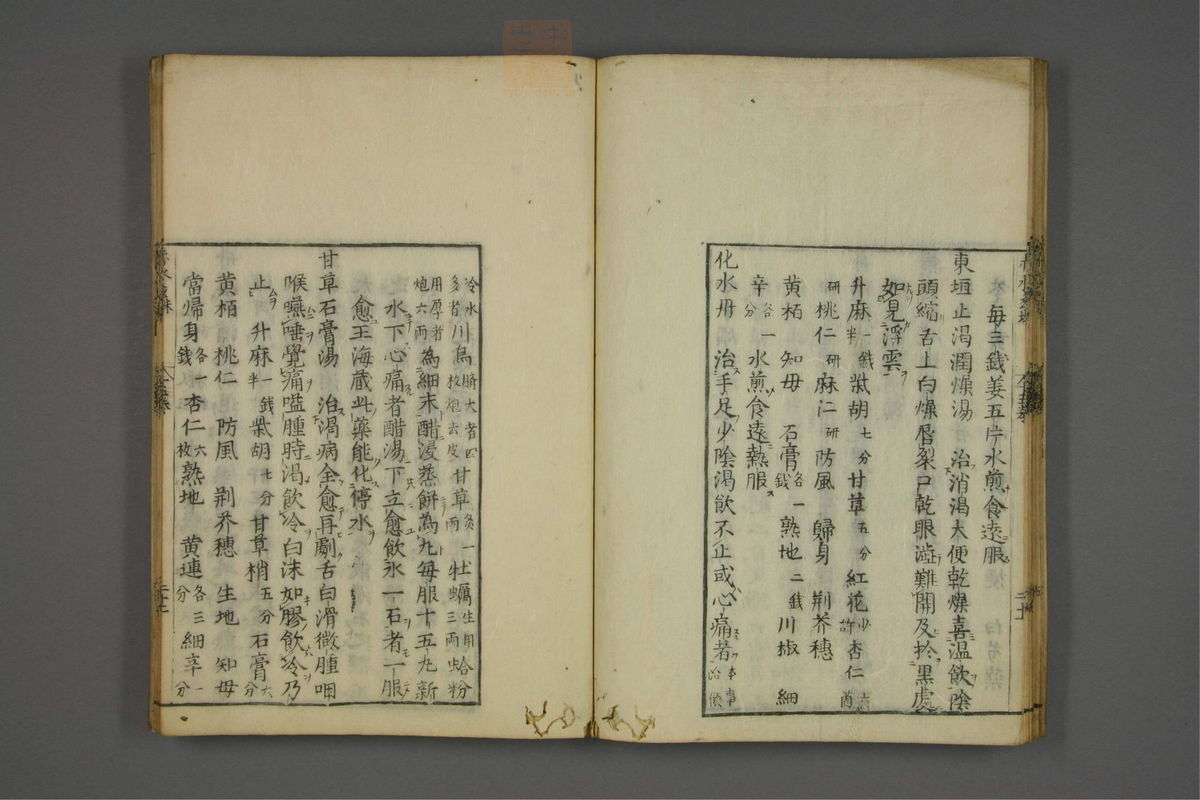 每三錢姜五片水煎食遠服
東垣止渴潤燥湯 治消渴大便乾燥喜温飲陰
頭縮舌上白燥唇裂口乾眼澁難開及於黒處
如見浮雲
升麻一錢半 柴胡七分 甘草五分 紅花少許 杏仁
研桃仁研麻仁研防風 歸身 荆芥穗
黄栢 知母 石膏各一錢 熟地二錢 川椒 細
辛各一分 水煎食遠熱服
化水丹 治手足少陰渴飲不止或心痛者本事治飲
冷水多者 川烏臍大者四枚炮去皮 甘草炙一兩 牡蠣生用三兩 蛤粉
用厚者炮六兩 為細末醋浸蒸餅為丸每服十五丸新
水下心痛者醋湯下立愈飲氷一石者一服
愈王海藏此藥能化停水
甘草石膏湯 治渴病全愈再劇舌白滑微腫咽
喉嚥唾覺痛嗌腫時渴飲冷白沫如膠飲冷乃
止 升麻一錢半 柴胡七分 甘草梢五分 石膏六分
黄栢 桃仁 防風 荆芥穗 生地 知母
當歸身各一錢 杏仁六枚 熟地 黄連各三分 細辛一分